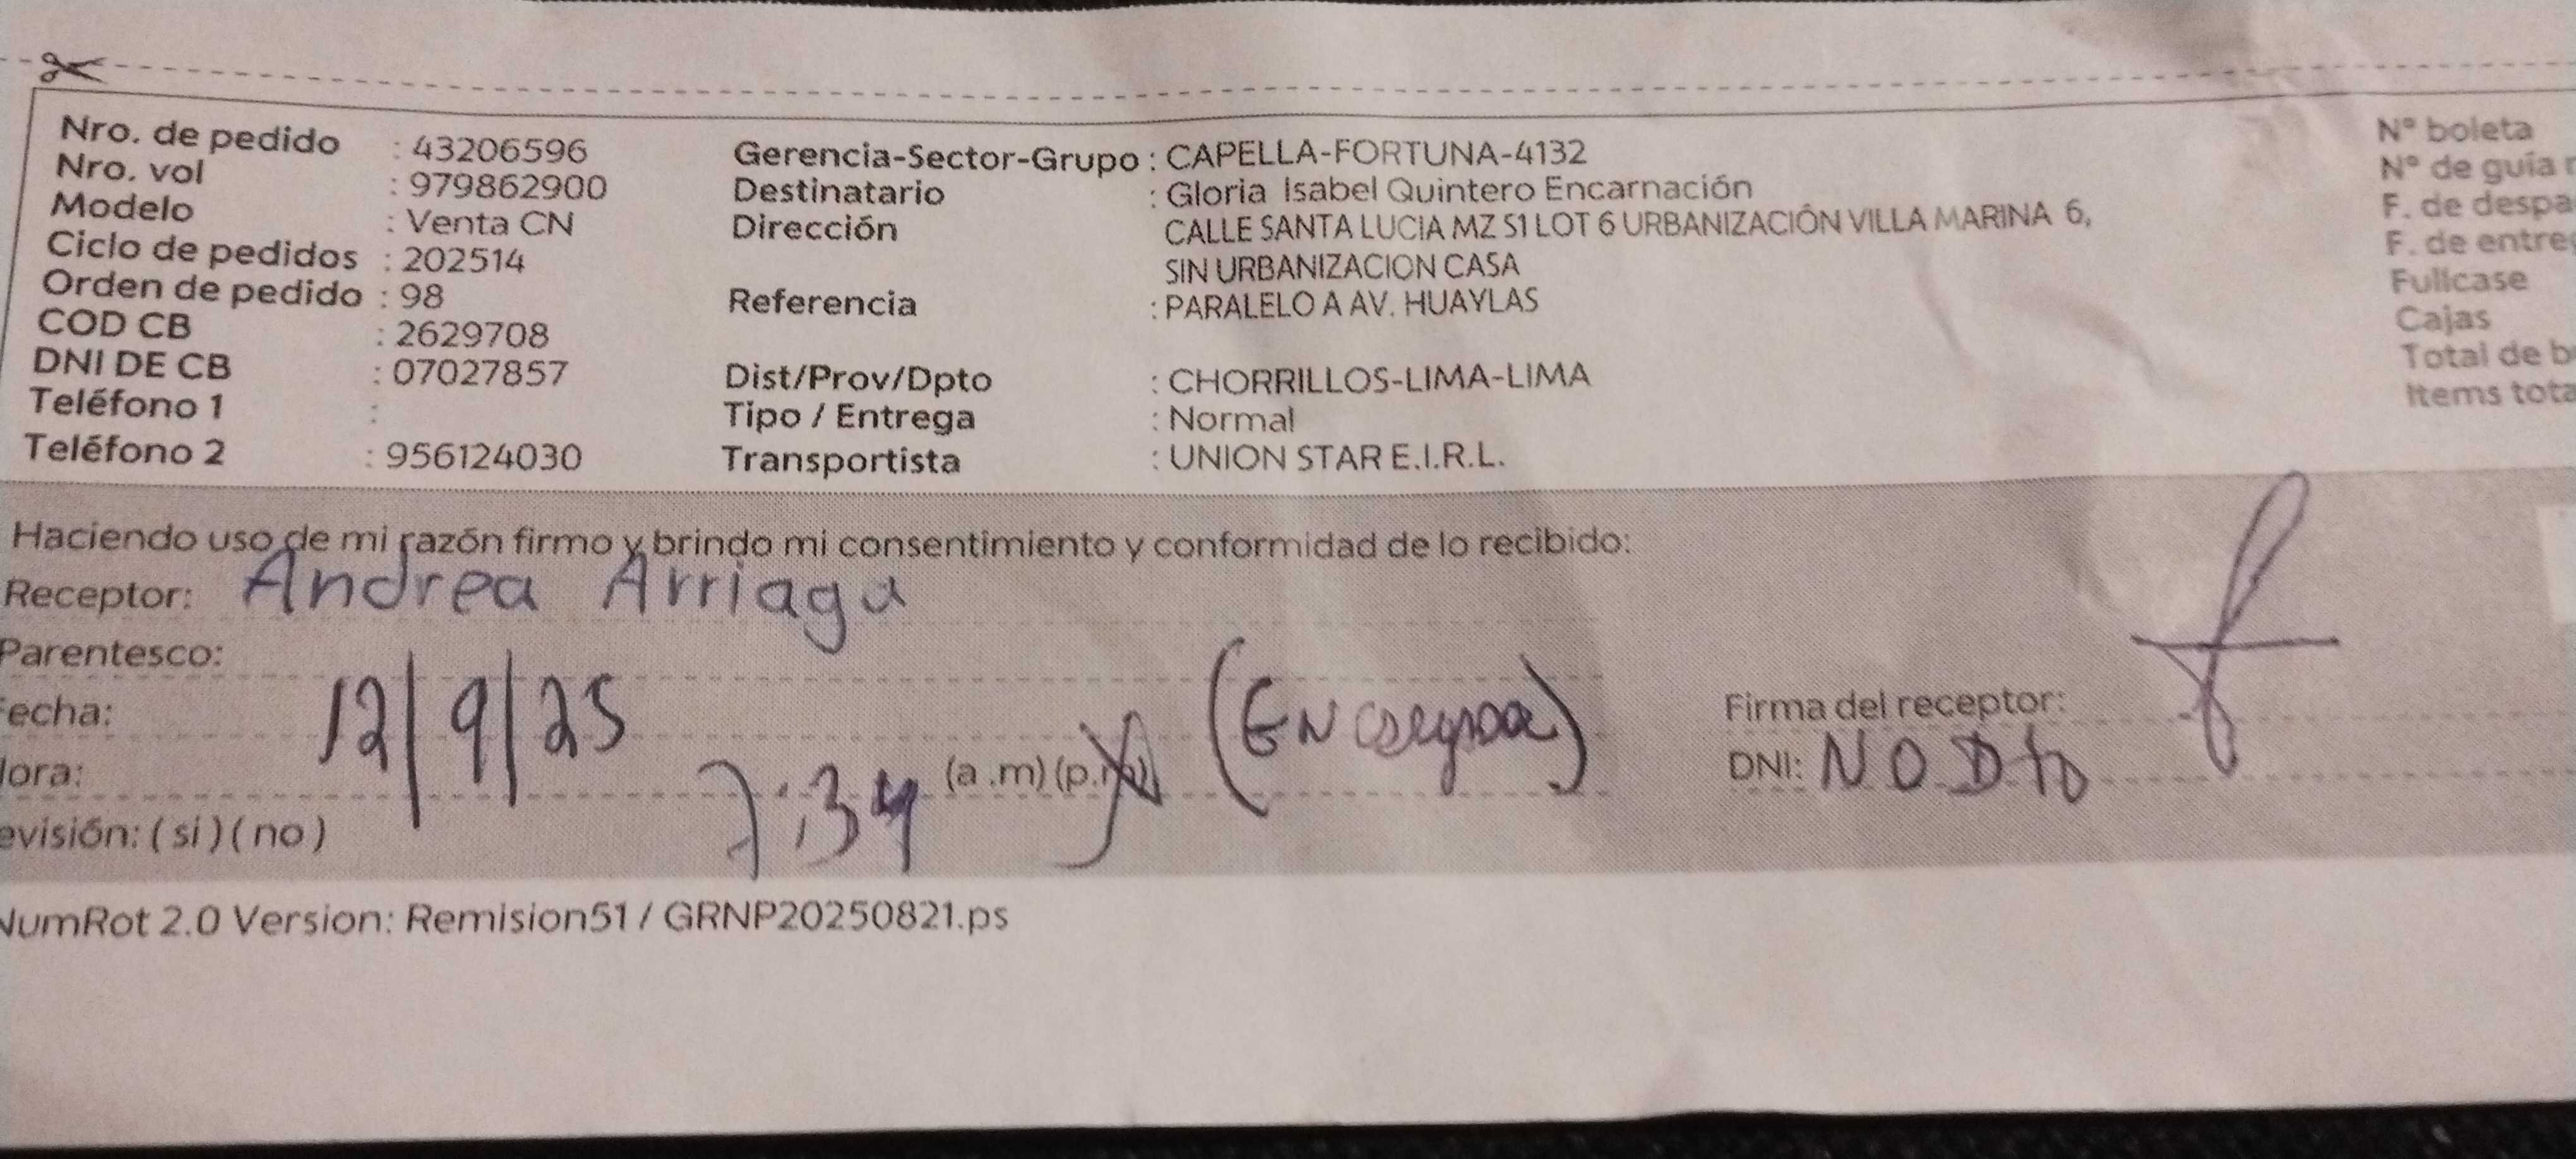 Nro. de pedido : 43206596
Nro. vol : 979862900
Modelo : Venta CN
Ciclo de pedidos : 202514
Orden de pedido : 98
COD CB : 2629708
DNI DE CB : 07027857
Teléfono 1 :
Teléfono 2 : 956124030
Gerencia-Sector-Grupo : CAPELLA-FORTUNA-4132
Destinatario : Gloria Isabel Quintero Encarnación
Dirección CALLE SANTA LUCIA MZ S1 LOT 6 URBANIZACIÓN VILLA MARINA 6,
SIN URBANIZACION CASA
Referencia : PARALELO A AV. HUAYLAS
Dist/Prov/Dpto : CHORRILLOS-LIMA-LIMA
Tipo / Entrega : Normal
Transportista : UNION STAR E.I.R.L.
Nº boleta
Nº de guía r
F. de despa
F. de entreg
Fullcase
Cajas
Total de b
Items tota
Haciendo uso de mi razón firmo y brindo mi consentimiento y conformidad de lo recibido:
Receptor: Andrea Arriaga
Parentesco:
echa: 12/9/25
ora: 7:34 (a .m) (p.m)
evisión: ( si ) ( no )
Firma del receptor:
DNI: NO DIO
NumRot 2.0 Version: Remision51 / GRNP20250821.ps